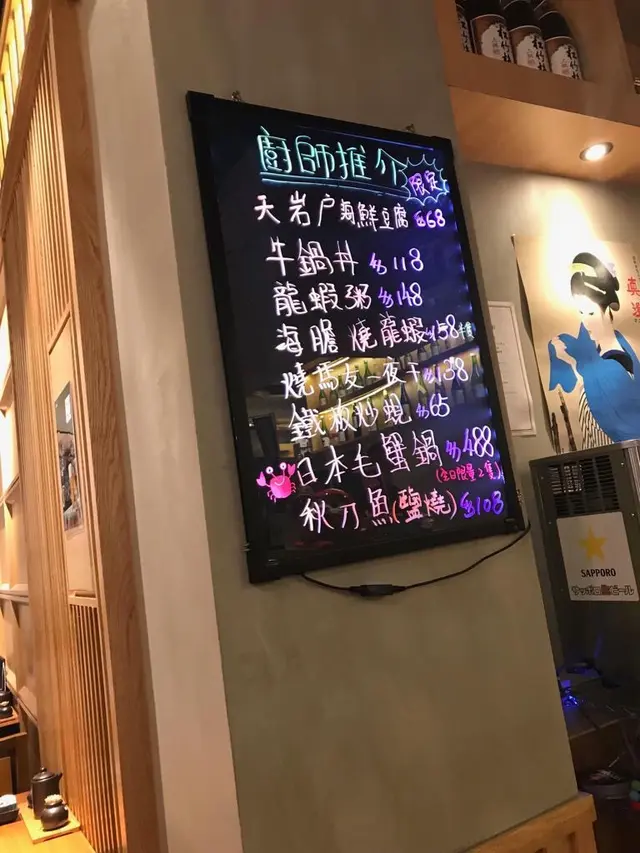 廚師推介
限定
天岩户海鮮豆腐 $68
牛鍋丼 $118
龍蝦粥 $148
海膽燒龍蝦 $158
燒馬友一夜干 $138
鐵板炒蜆 $65
日本毛蟹鍋 $488
(全日限量2隻)
秋刀魚(鹽燒) $108
松竹梅
SAPPORO
サッポロ生ビール